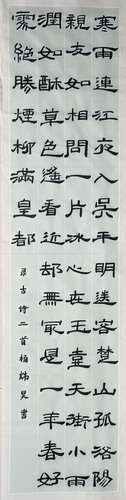 寒雨連江夜入吳平明送客楚山孤洛陽
親友如相問一片冰心在玉壺天街小雨
潤如酥草色遙看近却無最是一年春好
處絕勝煙柳滿皇都
录古詩二首 書